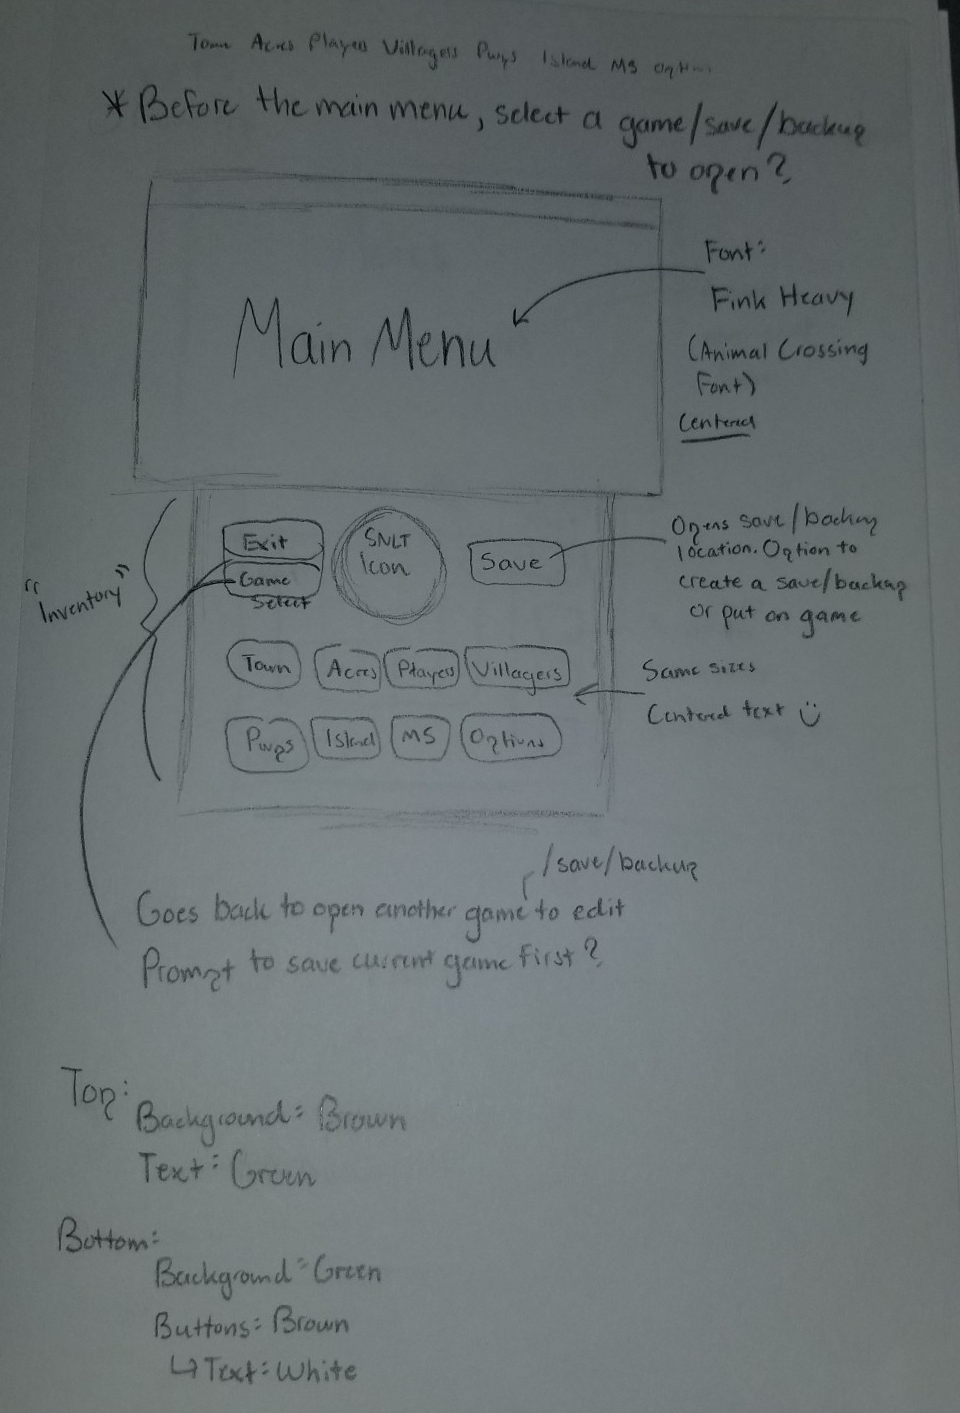 Town Acres Players Villagers Pwps Island MS Options
* Before the main menu, select a game/save/backup
to open?
Font:
Fink Heavy
(Animal Crossing
Font)
Centered
Main Menu
"Inventory"
Exit
Game
Select
SNLT
Icon
Save
Opens save/backup
location. Option to
create a save/backup
or put on game
Town Acres Players Villagers
Same sizes
Centered text
Pwps Island MS Options
/save/backup
Goes back to open another game to edit
Prompt to save current game first?
Top:
Background: Brown
Text: Green
Bottom:
Background: Green
Buttons: Brown
↳ Text: White